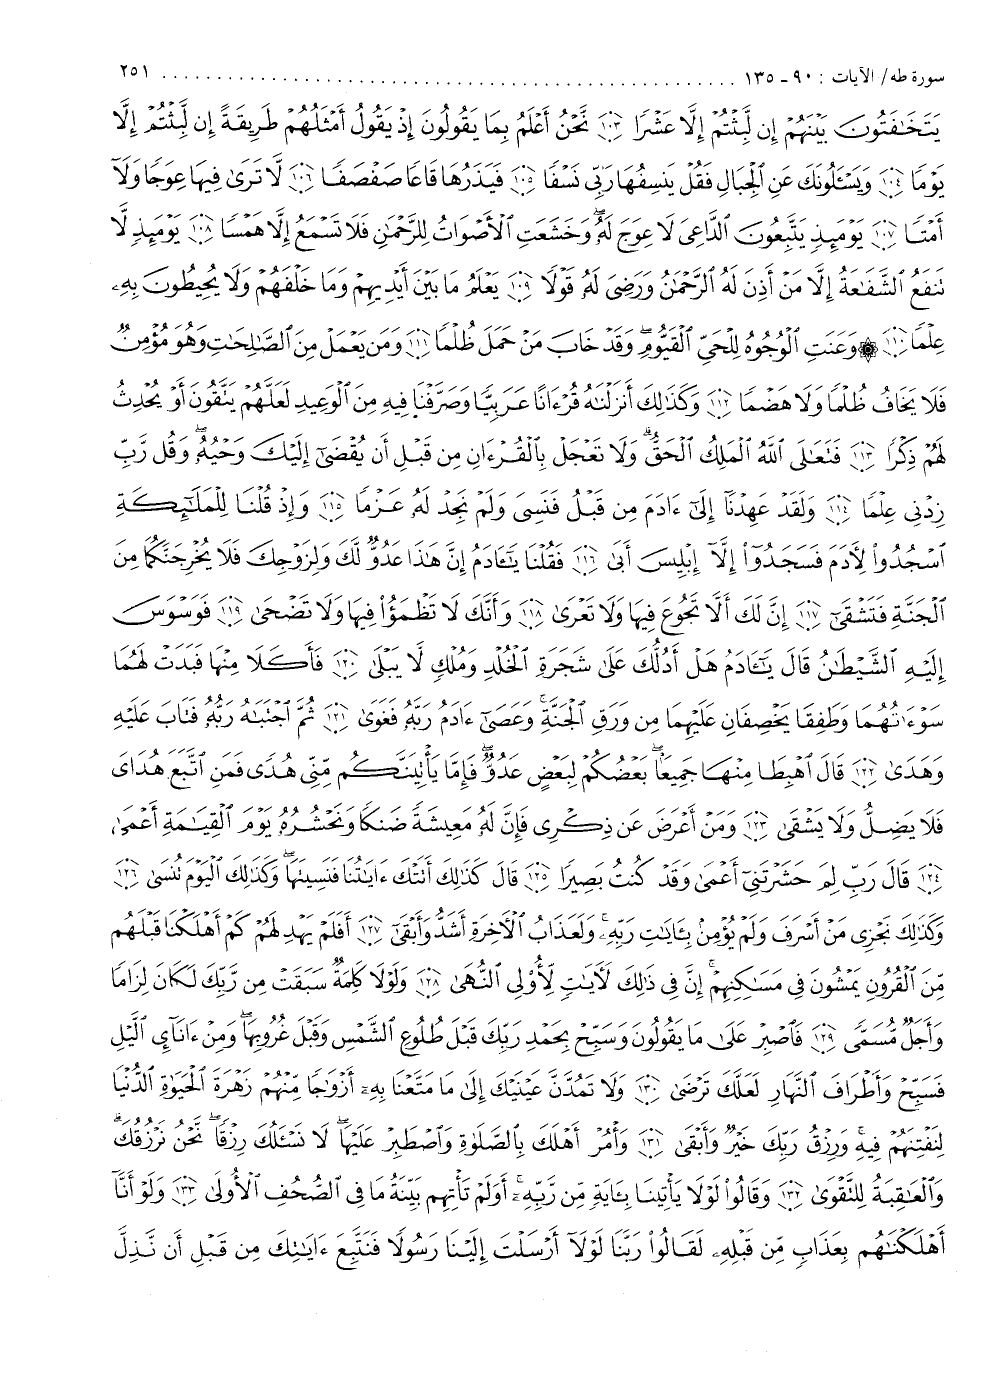 سورة طه/ الآيات : ٩٠ ـ ١٣٥ ........................................................ ٢٥١
يَتَخَٰفَتُونَ بَيۡنَهُمۡ إِن لَّبِثۡتُمۡ إِلَّا عَشۡرٗا ١٠٣ نَّحۡنُ أَعۡلَمُ بِمَا يَقُولُونَ إِذۡ يَقُولُ أَمۡثَلُهُمۡ طَرِيقَةً إِن لَّبِثۡتُمۡ إِلَّا
يَوۡمٗا ١٠٤ وَيَسۡـَٔلُونَكَ عَنِ ٱلۡجِبَالِ فَقُلۡ يَنسِفُهَا رَبِّي نَسۡفٗا ١٠٥ فَيَذَرُهَا قَاعٗا صَفۡصَفٗا ١٠٦ لَّا تَرَىٰ فِيهَا عِوَجٗا وَلَآ
أَمۡتٗا ١٠٧ يَوۡمَئِذٖ يَتَّبِعُونَ ٱلدَّاعِيَ لَا عِوَجَ لَهُۥۖ وَخَشَعَتِ ٱلۡأَصۡوَاتُ لِلرَّحۡمَٰنِ فَلَا تَسۡمَعُ إِلَّا هَمۡسٗا ١٠٨ يَوۡمَئِذٖ لَّا
تَنفَعُ ٱلشَّفَٰعَةُ إِلَّا مَنۡ أَذِنَ لَهُ ٱلرَّحۡمَٰنُ وَرَضِيَ لَهُۥ قَوۡلٗا ١٠٩ يَعۡلَمُ مَا بَيۡنَ أَيۡدِيهِمۡ وَمَا خَلۡفَهُمۡ وَلَا يُحِيطُونَ بِهِۦ
عِلۡمٗا ١١٠ ۞ وَعَنَتِ ٱلۡوُجُوهُ لِلۡحَيِّ ٱلۡقَيُّومِۖ وَقَدۡ خَابَ مَنۡ حَمَلَ ظُلۡمٗا ١١١ وَمَن يَعۡمَلۡ مِنَ ٱلصَّٰلِحَٰتِ وَهُوَ مُؤۡمِنٞ
فَلَا يَخَافُ ظُلۡمٗا وَلَا هَضۡمٗا ١١٢ وَكَذَٰلِكَ أَنزَلۡنَٰهُ قُرۡءَانًا عَرَبِيّٗا وَصَرَّفۡنَا فِيهِ مِنَ ٱلۡوَعِيدِ لَعَلَّهُمۡ يَتَّقُونَ أَوۡ يُحۡدِثُ
لَهُمۡ ذِكۡرٗا ١١٣ فَتَعَٰلَى ٱللَّهُ ٱلۡمَلِكُ ٱلۡحَقُّۗ وَلَا تَعۡجَلۡ بِٱلۡقُرۡءَانِ مِن قَبۡلِ أَن يُقۡضَىٰٓ إِلَيۡكَ وَحۡيُهُۥۖ وَقُل رَّبِّ
زِدۡنِي عِلۡمٗا ١١٤ وَلَقَدۡ عَهِدۡنَآ إِلَىٰٓ ءَادَمَ مِن قَبۡلُ فَنَسِيَ وَلَمۡ نَجِدۡ لَهُۥ عَزۡمٗا ١١٥ وَإِذۡ قُلۡنَا لِلۡمَلَٰٓئِكَةِ
ٱسۡجُدُواْ لِأٓدَمَ فَسَجَدُوٓاْ إِلَّآ إِبۡلِيسَ أَبَىٰ ١١٦ فَقُلۡنَا يَٰٓـَٔادَمُ إِنَّ هَٰذَا عَدُوّٞ لَّكَ وَلِزَوۡجِكَ فَلَا يُخۡرِجَنَّكُمَا مِنَ
ٱلۡجَنَّةِ فَتَشۡقَىٰٓ ١١٧ إِنَّ لَكَ أَلَّا تَجُوعَ فِيهَا وَلَا تَعۡرَىٰ ١١٨ وَأَنَّكَ لَا تَظۡمَؤُاْ فِيهَا وَلَا تَضۡحَىٰ ١١٩ فَوَسۡوَسَ
إِلَيۡهِ ٱلشَّيۡطَٰنُ قَالَ يَٰٓـَٔادَمُ هَلۡ أَدُلُّكَ عَلَىٰ شَجَرَةِ ٱلۡخُلۡدِ وَمُلۡكٖ لَّا يَبۡلَىٰ ١٢٠ فَأَكَلَا مِنۡهَا فَبَدَتۡ لَهُمَا
سَوۡءَٰتُهُمَا وَطَفِقَا يَخۡصِفَانِ عَلَيۡهِمَا مِن وَرَقِ ٱلۡجَنَّةِۚ وَعَصَىٰٓ ءَادَمُ رَبَّهُۥ فَغَوَىٰ ١٢١ ثُمَّ ٱجۡتَبَٰهُ رَبُّهُۥ فَتَابَ عَلَيۡهِ
وَهَدَىٰ ١٢٢ قَالَ ٱهۡبِطَا مِنۡهَا جَمِيعَۢاۖ بَعۡضُكُمۡ لِبَعۡضٍ عَدُوّٞۖ فَإِمَّا يَأۡتِيَنَّكُم مِّنِّي هُدٗى فَمَنِ ٱتَّبَعَ هُدَايَ
فَلَا يَضِلُّ وَلَا يَشۡقَىٰ ١٢٣ وَمَنۡ أَعۡرَضَ عَن ذِكۡرِي فَإِنَّ لَهُۥ مَعِيشَةٗ ضَنكٗا وَنَحۡشُرُهُۥ يَوۡمَ ٱلۡقِيَٰمَةِ أَعۡمَىٰ
١٢٤ قَالَ رَبِّ لِمَ حَشَرۡتَنِيٓ أَعۡمَىٰ وَقَدۡ كُنتُ بَصِيرٗا ١٢٥ قَالَ كَذَٰلِكَ أَتَتۡكَ ءَايَٰتُنَا فَنَسِيتَهَاۖ وَكَذَٰلِكَ ٱلۡيَوۡمَ تُنسَىٰ ١٢٦
وَكَذَٰلِكَ نَجۡزِي مَنۡ أَسۡرَفَ وَلَمۡ يُؤۡمِنۢ بِـَٔايَٰتِ رَبِّهِۦۚ وَلَعَذَابُ ٱلۡأٓخِرَةِ أَشَدُّ وَأَبۡقَىٰٓ ١٢٧ أَفَلَمۡ يَهۡدِ لَهُمۡ كَمۡ أَهۡلَكۡنَا قَبۡلَهُم
مِّنَ ٱلۡقُرُونِ يَمۡشُونَ فِي مَسَٰكِنِهِمۡۚ إِنَّ فِي ذَٰلِكَ لَأٓيَٰتٖ لِّأُوْلِي ٱلنُّهَىٰ ١٢٨ وَلَوۡلَا كَلِمَةٞ سَبَقَتۡ مِن رَّبِّكَ لَكَانَ لِزَامٗا
وَأَجَلٞ مُّسَمّٗى ١٢٩ فَٱصۡبِرۡ عَلَىٰ مَا يَقُولُونَ وَسَبِّحۡ بِحَمۡدِ رَبِّكَ قَبۡلَ طُلُوعِ ٱلشَّمۡسِ وَقَبۡلَ غُرُوبِهَاۖ وَمِنۡ ءَانَآيِٕ ٱلَّيۡلِ
فَسَبِّحۡ وَأَطۡرَافَ ٱلنَّهَارِ لَعَلَّكَ تَرۡضَىٰ ١٣٠ وَلَا تَمُدَّنَّ عَيۡنَيۡكَ إِلَىٰ مَا مَتَّعۡنَا بِهِۦٓ أَزۡوَٰجٗا مِّنۡهُمۡ زَهۡرَةَ ٱلۡحَيَوٰةِ ٱلدُّنۡيَا
لِنَفۡتِنَهُمۡ فِيهِۚ وَرِزۡقُ رَبِّكَ خَيۡرٞ وَأَبۡقَىٰ ١٣١ وَأۡمُرۡ أَهۡلَكَ بِٱلصَّلَوٰةِ وَٱصۡطَبِرۡ عَلَيۡهَاۖ لَا نَسۡـَٔلُكَ رِزۡقٗاۖ نَّحۡنُ نَرۡزُقُكَۗ
وَٱلۡعَٰقِبَةُ لِلتَّقۡوَىٰ ١٣٢ وَقَالُواْ لَوۡلَا يَأۡتِينَا بِـَٔايَةٖ مِّن رَّبِّهِۦٓۚ أَوَلَمۡ تَأۡتِهِم بَيِّنَةُ مَا فِي ٱلصُّحُفِ ٱلۡأُولَىٰ ١٣٣ وَلَوۡ أَنَّآ
أَهۡلَكۡنَٰهُم بِعَذَابٖ مِّن قَبۡلِهِۦ لَقَالُواْ رَبَّنَا لَوۡلَآ أَرۡسَلۡتَ إِلَيۡنَا رَسُولٗا فَنَتَّبِعَ ءَايَٰتِكَ مِن قَبۡلِ أَن نَّذِلَّ